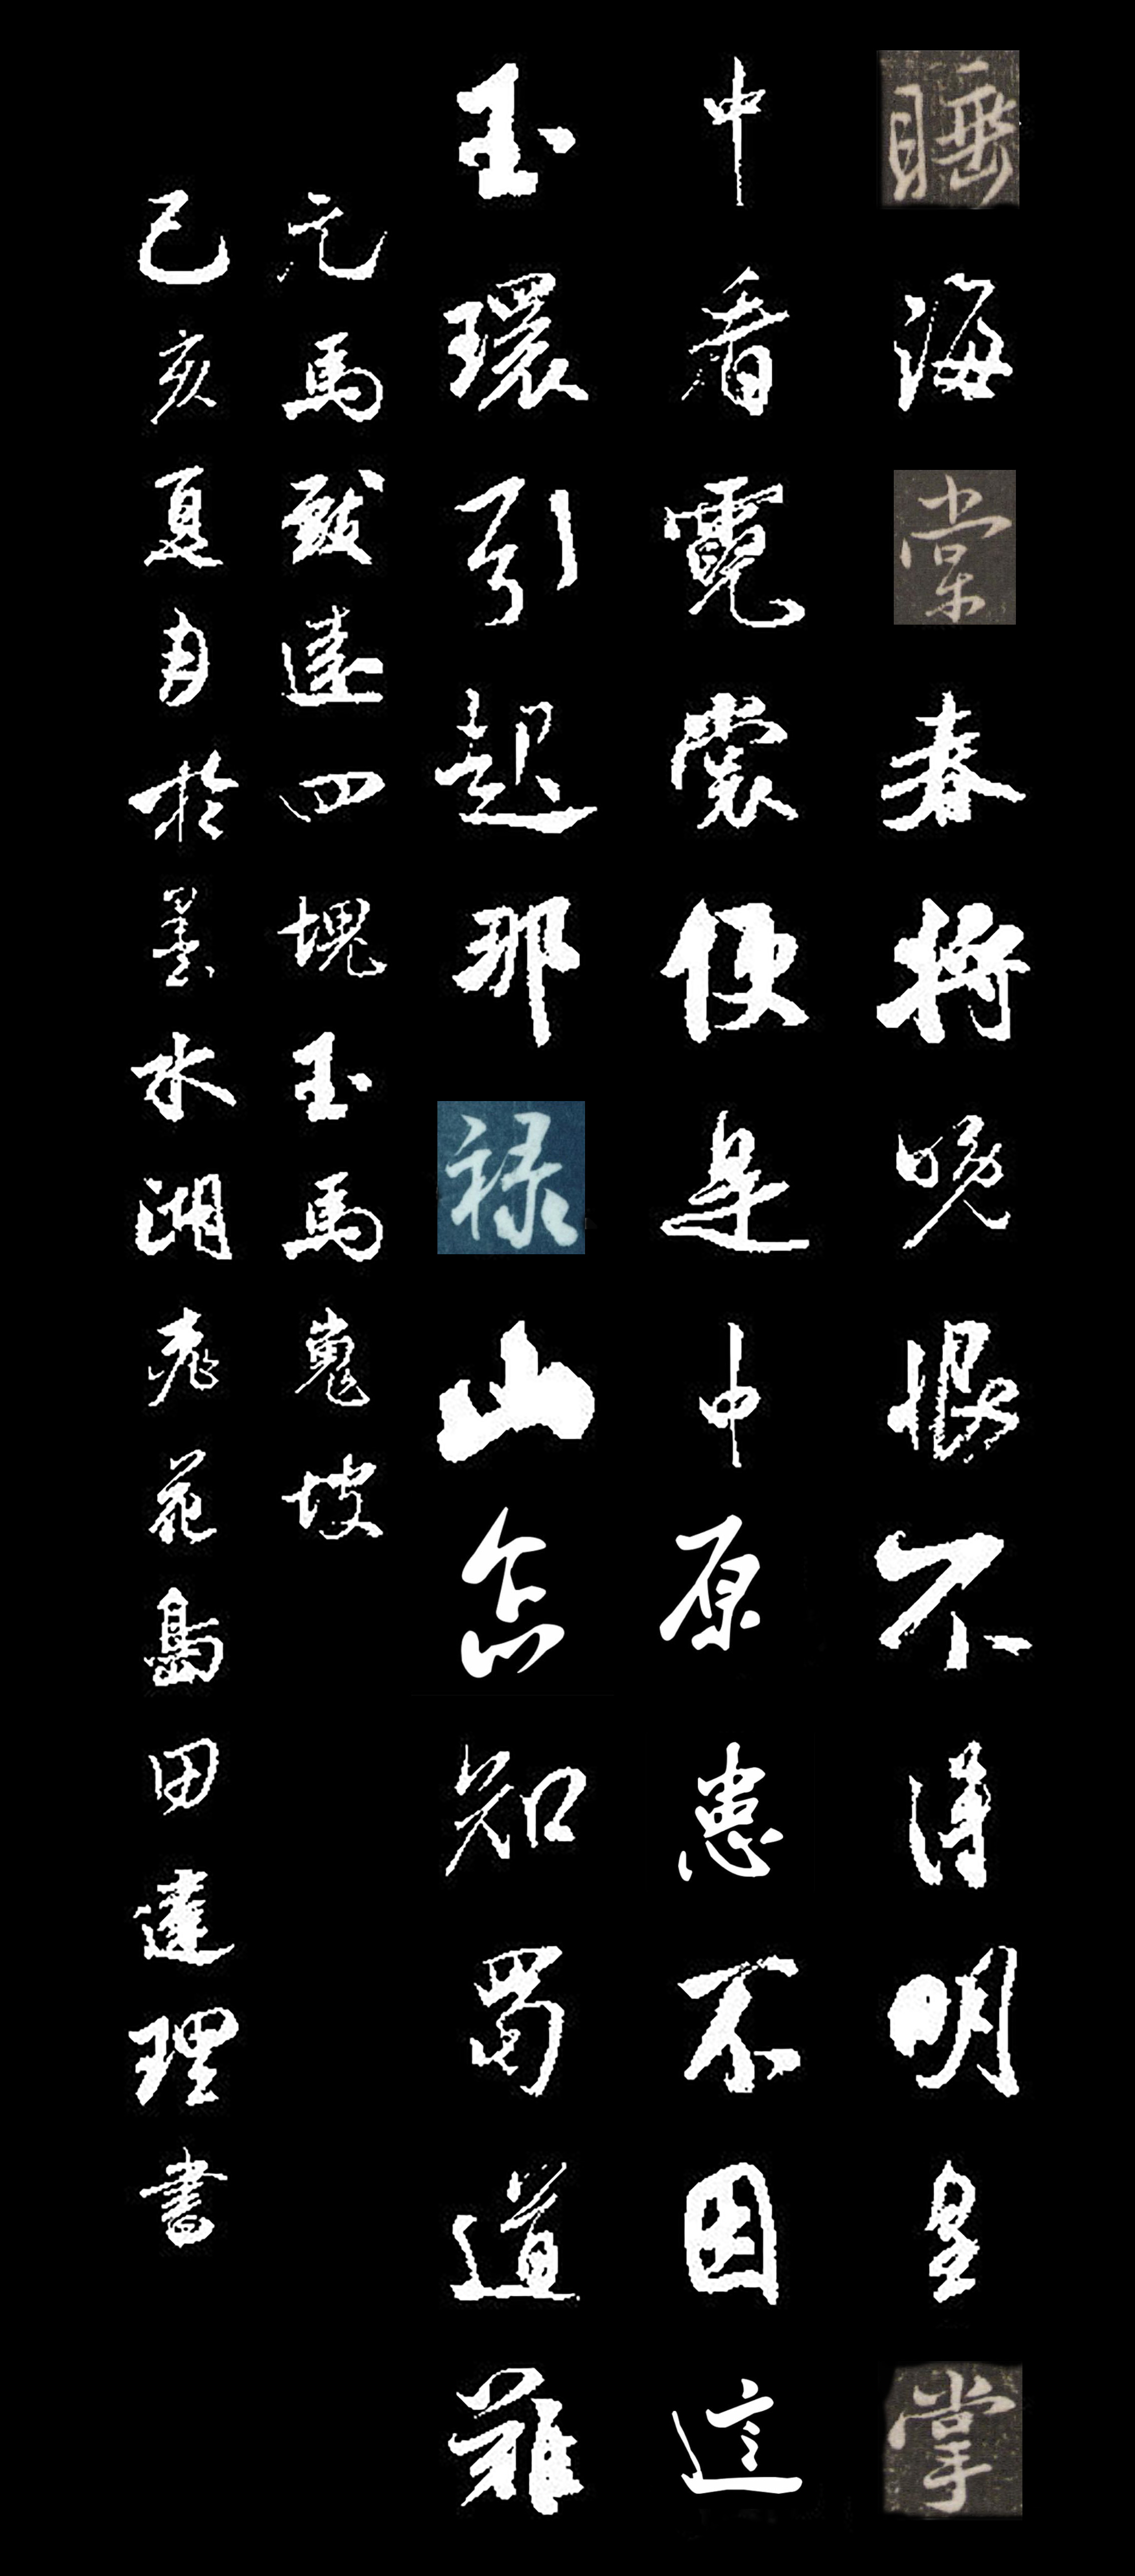 睡海棠春將晚恨不得明皇掌
中看霓裳便是中原患不因這
玉環引起那禄山怎知蜀道難
元馬致遠四塊玉馬嵬坡
己亥夏月於墨水湖老花島田達理書